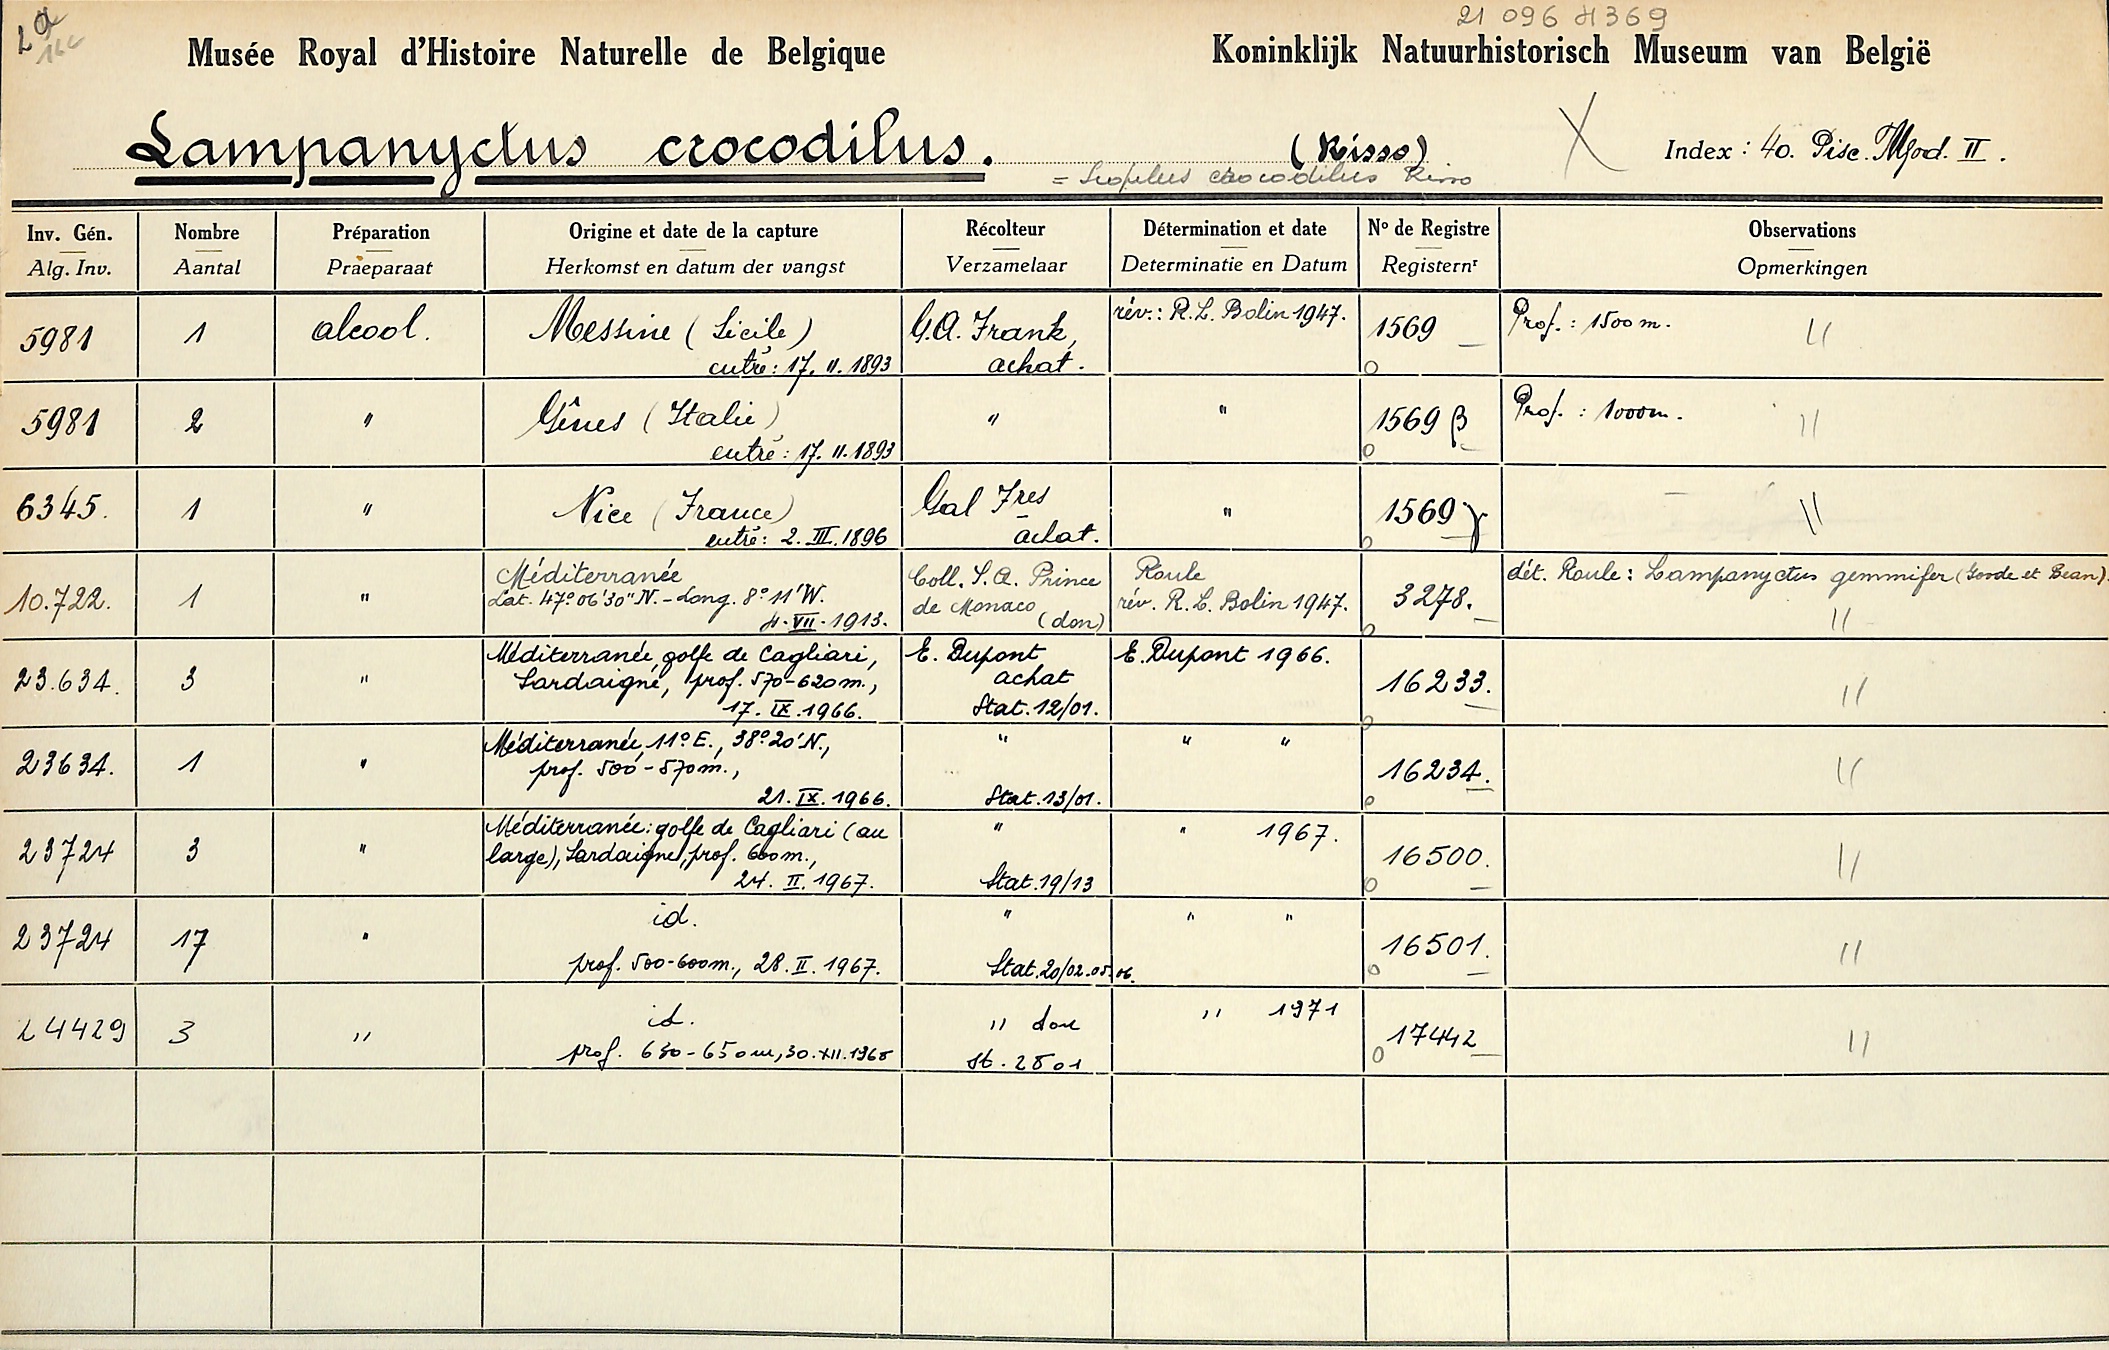 21 096 4369
Musée Royal d'Histoire Naturelle de Belgique
Koninklijk Natuurhistorisch Museum van België
Lampanyctus crocodilus. (Risso) X Index : 40. Pisc. Mod. II.
= Scopelus crocodilus Risso
Inv. Gén. Nombre Préparation Origine et date de la capture Récolteur Détermination et date No de Registre Observations
Alg. Inv. Aantal Praeparaat Herkomst en datum der vangst Verzamelaar Determinatie en Datum Registernr Opmerkingen
5981 1 alcool. Messine (Sicile) G.A. Frank, rév.: R.L. Bolin 1947. 1569 Prof. : 1500 m. //
entré: 17. II. 1893 achat.
5981 2 " Gênes (Italie) " " 1569 β Prof. : 1000m. //
entré: 17. II. 1893
6345. 1 " Nice (France) Gal Fres " 1569 γ //
entré: 2. III. 1896 achat.
10.722. 1 " Méditerranée Coll. S.A. Prince Roule 3278. dét. Roule : Lampanyctus gemmifer (Goode et Bean).
Lat. 47° 06' 30" N. - Long. 8° 11' W. de Monaco rév. R.L. Bolin 1947. //
4. VII. 1913. (don)
23.634. 3 " Méditerranée, golfe de Cagliari, E. Dupont E. Dupont 1966. 16233. //
Sardaigne, prof. 570-620m., achat
17. IX. 1966. Stat. 12/01.
23634. 1 " Méditerranée, 11° E., 38° 20' N., " " " 16234. //
prof. 500-570m.,
21. IX. 1966. Stat. 13/01.
23724 3 " Méditerranée: golfe de Cagliari (au " " 1967. 16500. //
large), Sardaigne, prof. 600m.,
24. II. 1967. Stat. 19/13
23724 17 " id. " " " 16501. //
prof. 500-600m., 28. II. 1967. Stat. 20/02.05.06.
24429 3 " id. " don " 1971 17442 //
prof. 630-650m, 30. XII. 1968 St. 2801